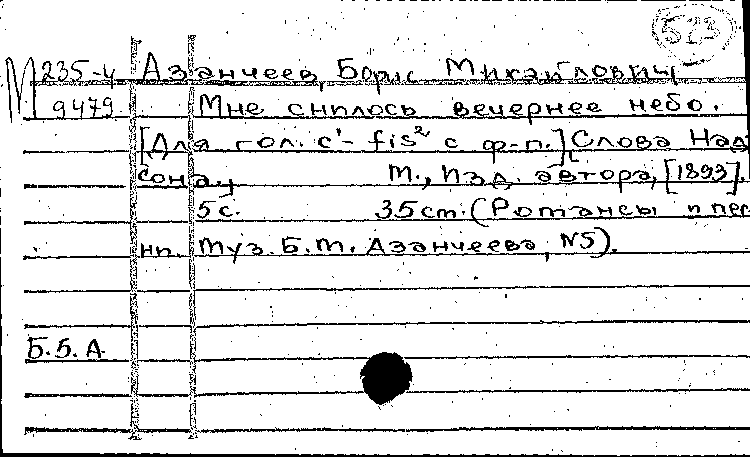 523
М 235-4 Азанчеев, Борис Михайлович
9479 Мне снилось вечернее небо.
[Для гол. c¹- fis² с ф-п.] Слова Над
сона
М., изд. автора, [1893].
5 с. 35 см. (Романсы и пес
ни. Муз. Б.М. Азанчеева, N5).
Б.Б.А.